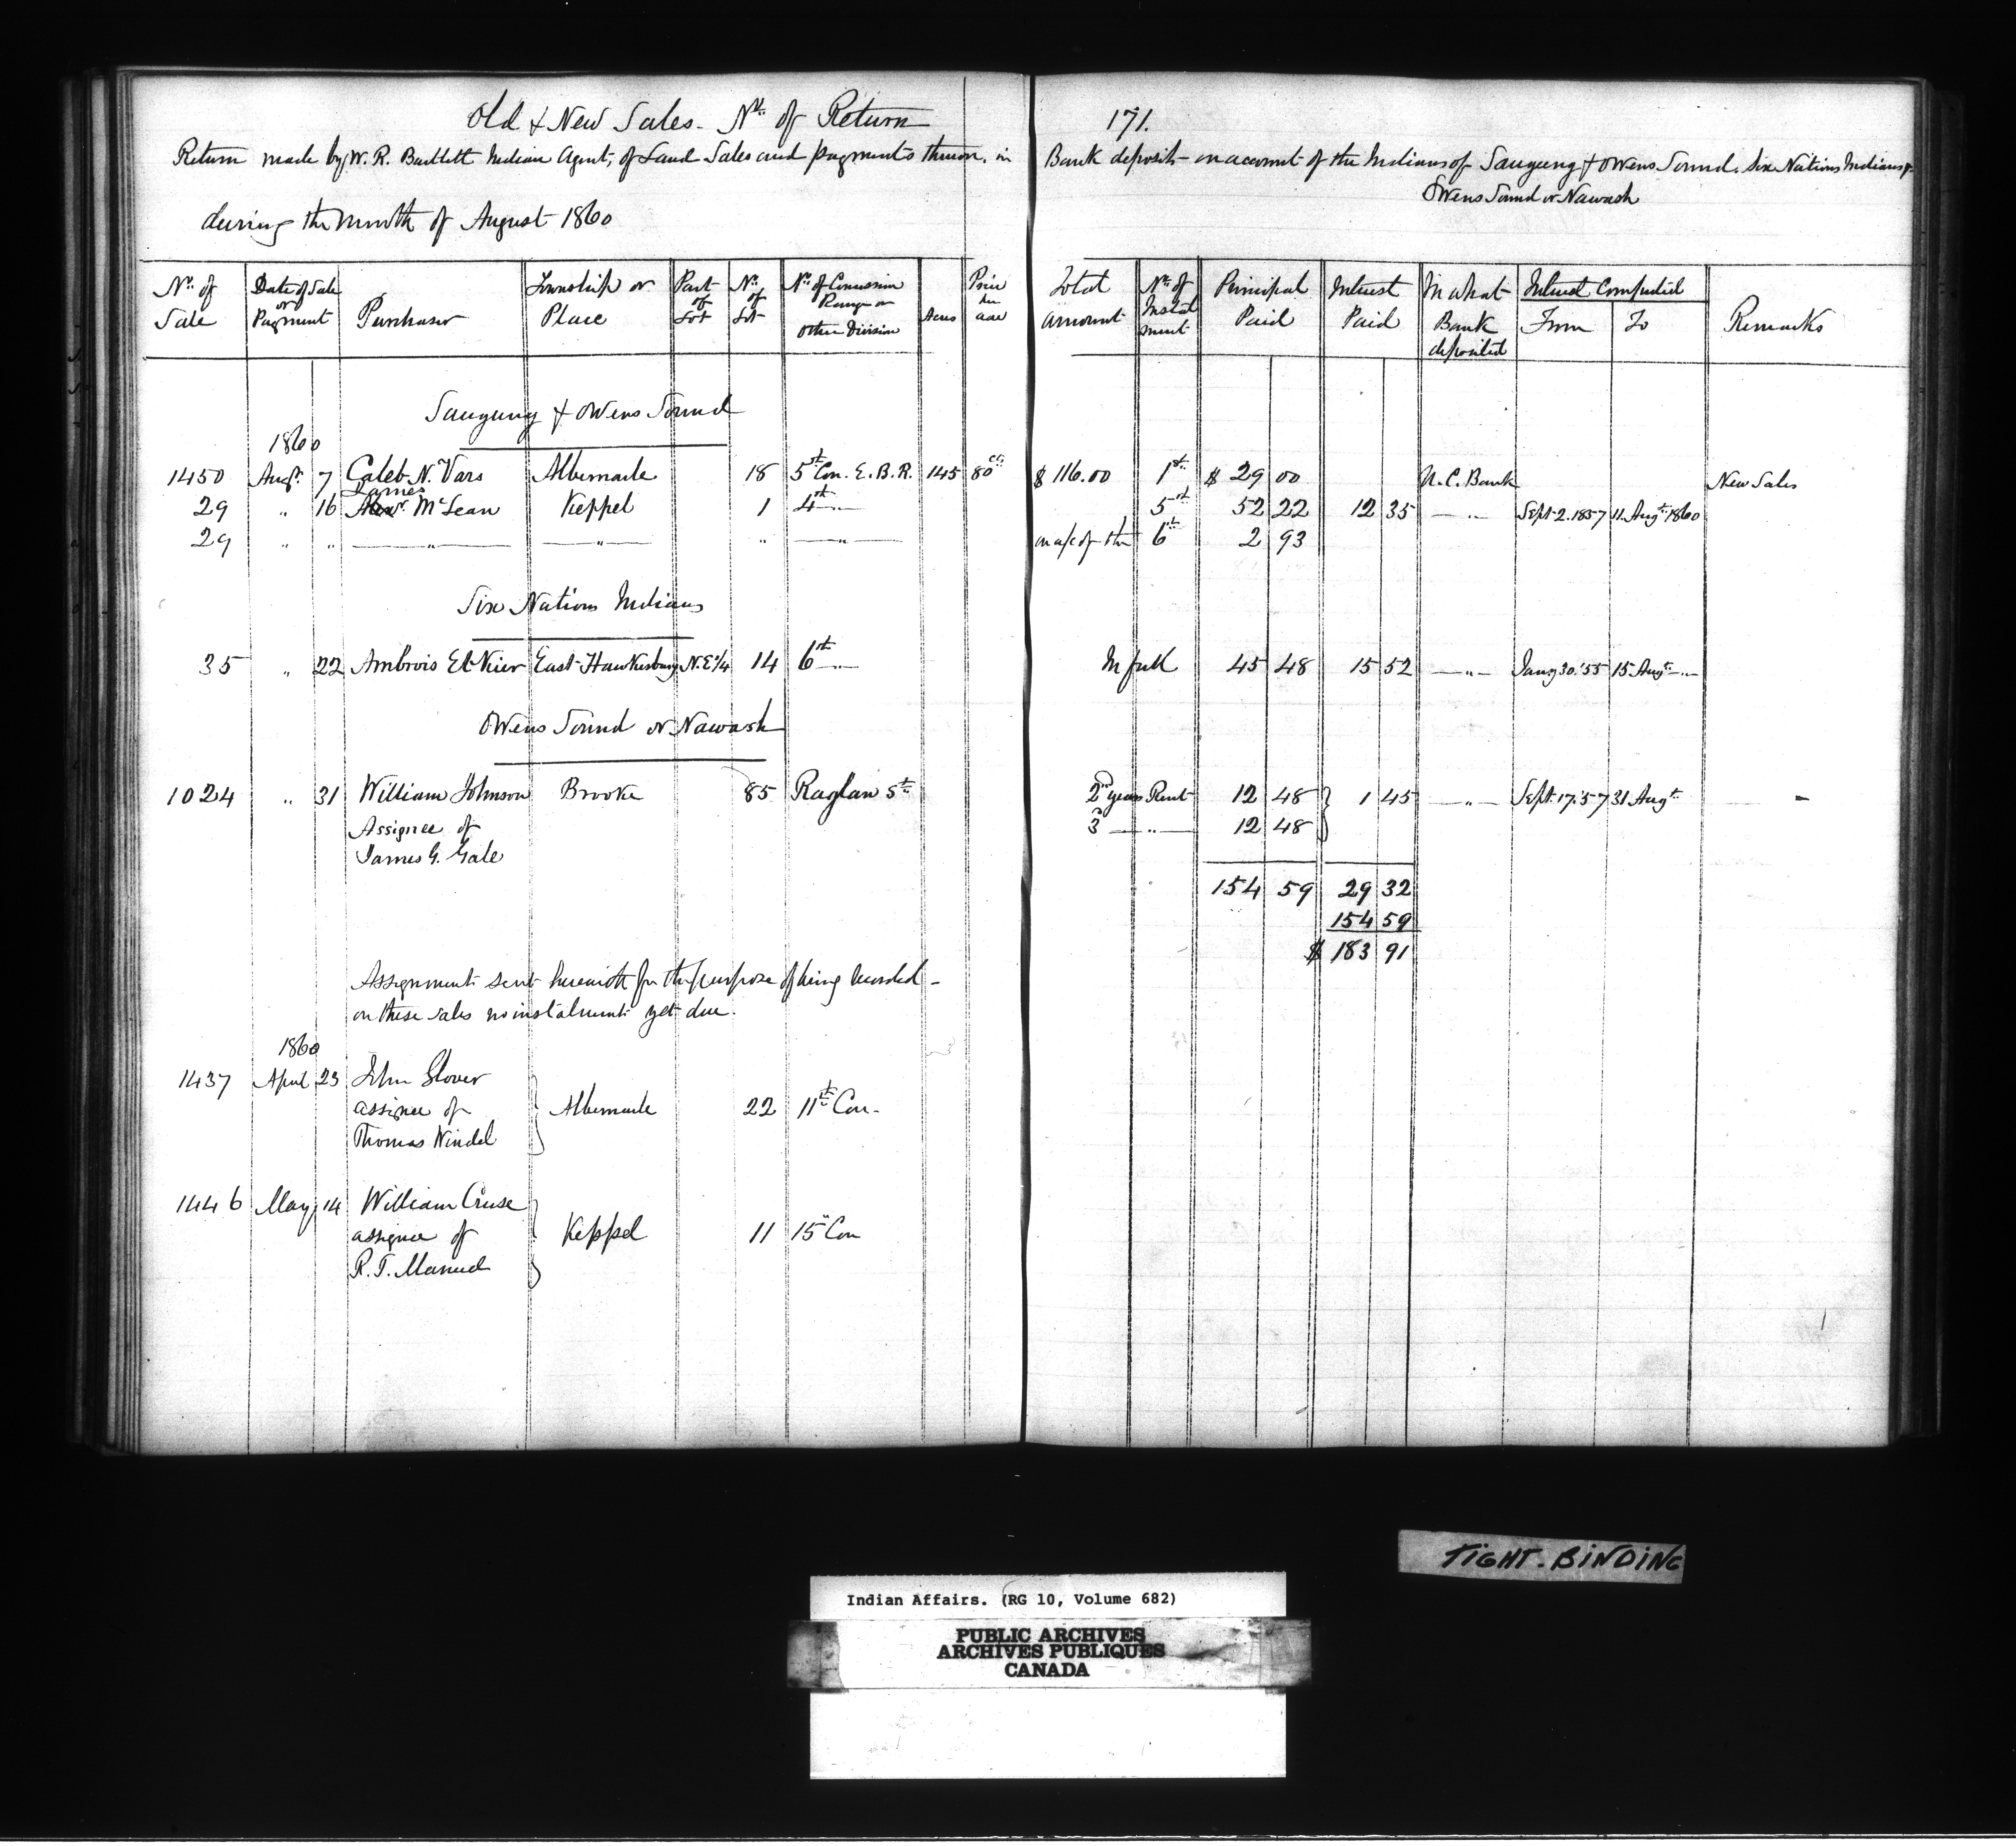 Old & New Sales - No. of Return 171.
Return made by W. R. Bartlett Indian Agent, of Land Sales and payments thereon, in Bank deposit on account of the Indians of Saugeeng & Owens Sound. Six Nations Indians &
Owens Sound or Nawash
during the month of August 1860
No. of Sale | Date of Sale or Payment | Purchaser | Township or Place | Part of Lot | No. of Lot | No. of Concession Range or other Division | Acres | Price per acre | Total amount | No. of Instalment | Principal Paid | Interest Paid | In what Bank deposited | Interest Computed From | To | Remarks
Saugeeng & Owens Sound
1860
1450 Augt. 7 Caleb N. Vars Albemarle 18 5th Con. E. B. R. 145 80cts $116.00 1st $29 00 U. C. Bank New Sales
James
29 " 16 McLean Keppel 1 4th " 5th 52 22 12 35 " Sept. 2. 1857 11 Augt. 1860
29 " " " " " " on a/c of the 6th 2 93
Six Nations Indians
35 " 22 Ambrois Et Kier East Hawkesbury N.E 1/4 14 6th " In full 45 48 15 52 " Jany 30. '55 15 Augt. "
Owens Sound or Nawash
1024 " 31 William Johnson Brooke 85 Raglan St. 2nd years Rent 12 48 } 1 45 " Sept. 17. '57 31 Augt. -
Assignee of 3 " 12 48
James G. Gale
154 59 29 32
154 59
$ 183 91
Assignments sent herewith for the purpose of being recorded -
on these sales no instalment yet due.
1860
1437 April 23 John Glover
assignee of Albemarle 22 11th Con.
Thomas Windel
1446 May 14 William Cruse
assignee of Keppel 11 15" Con
R. T. Manuel
TIGHT. BINDING
Indian Affairs. (RG 10, Volume 682)
PUBLIC ARCHIVES
ARCHIVES PUBLIQUES
CANADA